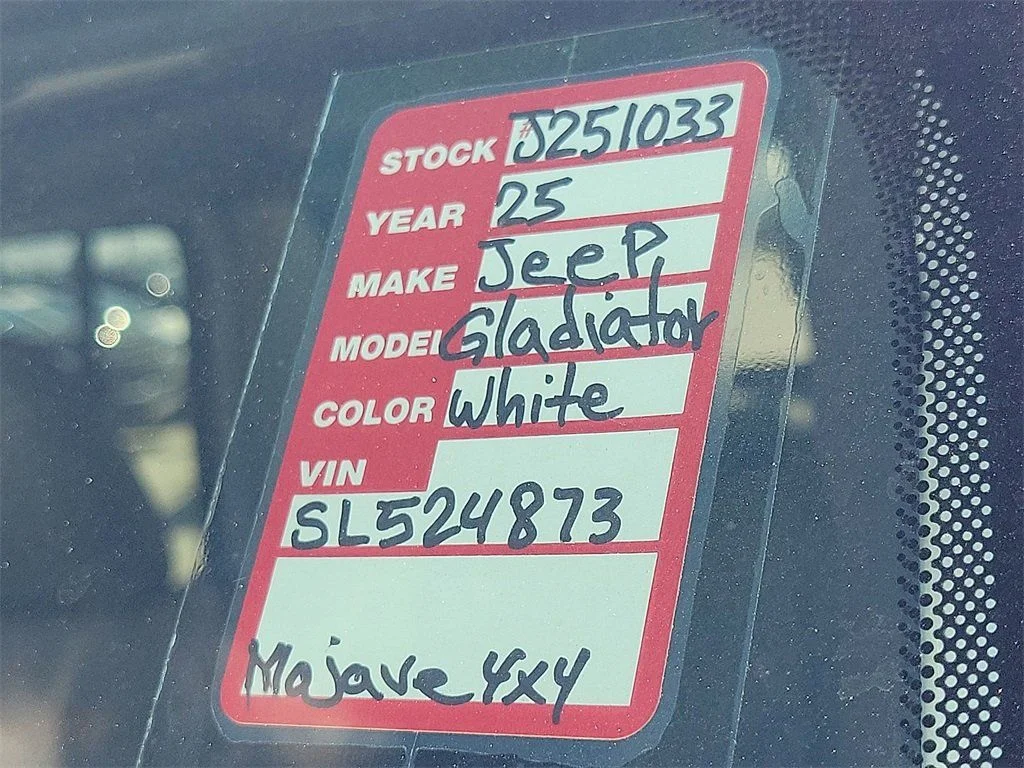 STOCK #J251033
YEAR 25
MAKE Jeep
MODEL Gladiator
COLOR White
VIN
SL524873
Mojave 4x4